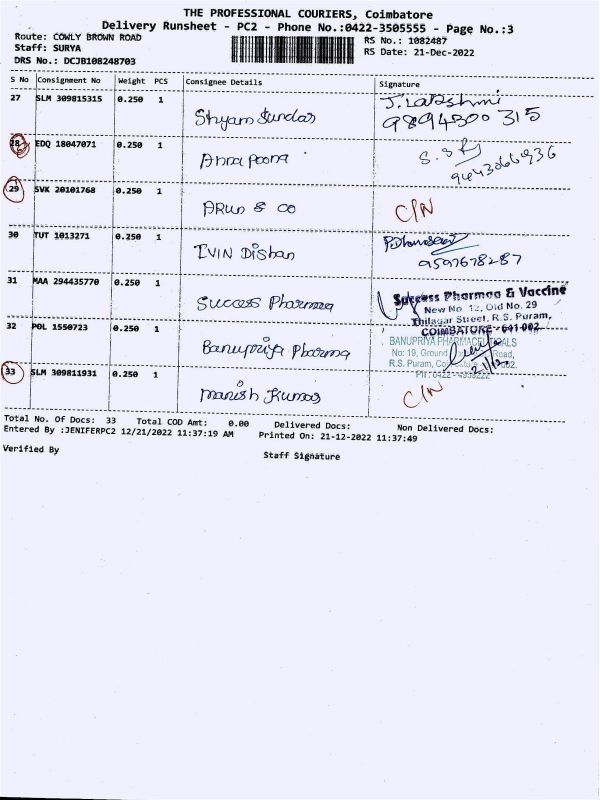 THE PROFESSIONAL COURIERS, Coimbatore
Delivery Runsheet - PC2 - Phone No.:0422-3505555 - Page No.:3
Route: COWLY BROWN ROAD
Staff: SURYA
DRS No.: DCJB108248703
RS No.: 1082487
RS Date: 21-Dec-2022
S No Consignment No Weight PCS Consignee Details Signature
27 SLM 309815315 0.250 1 Shyam Sundar J. Lakshmi
9894300 315
28 EDQ 18047071 0.250 1 Anna Poorna
9443066936
29 SVK 20101768 0.250 1 Arun & Co C/N
30 TUT 1013271 0.250 1 IVIN Dishan
9597678287
31 MAA 294435770 0.250 1 Success Pharmaa
Success Pharmaa & Vaccine
New No. 12, Old No. 29
Thilagar Street, R.S. Puram,
COIMBATORE - 641 002.
32 POL 1550723 0.250 1 Banupriya Pharma
BANUPRIYA PHARMACEUTICALS
No: 19, Ground Road,
R.S. Puram,
PH: 0422 - 4958222
21/12
33 SLM 309811931 0.250 1 Manish Kumar C/N
Total No. Of Docs: 33 Total COD Amt: 0.00 Delivered Docs: Non Delivered Docs:
Entered By :JENIFERPC2 12/21/2022 11:37:19 AM Printed On: 21-12-2022 11:37:49
Verified By Staff Signature